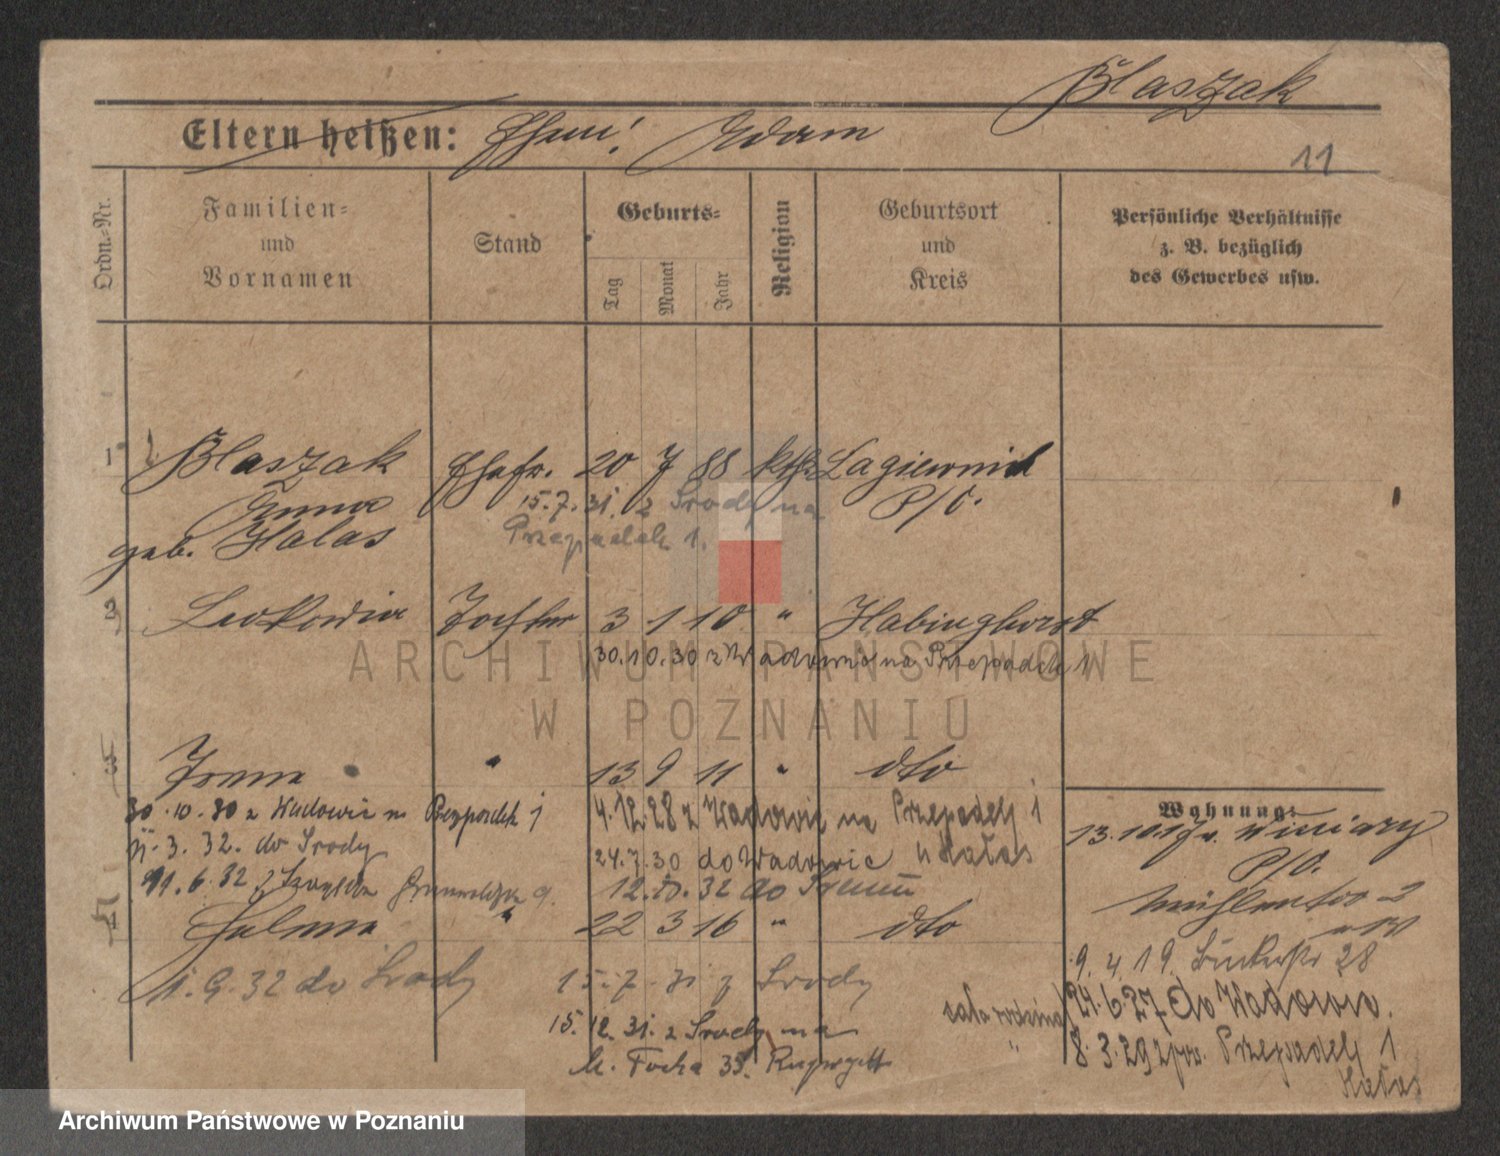 Blaszak
Eltern heißen: Ehem! Adam
11
Ordn.-Nr.
Familien- und Vornamen
Stand
Geburts-
Tag
Monat
Jahr
Religion
Geburtsort und Kreis
Persönliche Verhältnisse
z. B. bezüglich
des Gewerbes usw.
1 Blaszak Ehefr. 20 7 88 kth. Lagiewnik
Anna P/O.
geb. Halas
15.7.31. z Środy na
Przepadek 1.
2 Leokadia Tochter 3 1 10 " Habinghorst
30.10.30 z na Przepadek 1
3 Irena " 13 9 11 " dto
30.10.30 z Wadowic n. Przepadek 1
4.12.28 z Wadowic na Przepadek 1
3.32. do Środy
24.7.30 do Wadowic u Halas
11.6.32 z 9.
12.10.32 do Śremu
4 Helena " 22 3 16 " dto
1.9.32 do Środy
15.7.31 z Środy
15.12.31. z Środy na
M. Focha 33.
Wohnung:
13.10.17 v. Winiary
P/O.
Mühlentor 2
9.4.19. 28
cała rodzina
24.6.27 do Wadowic.
8.3.29 z pow. Przepadek 1
Halas
ARCHIWUM PAŃSTWOWE
W POZNANIU
Archiwum Państwowe w Poznaniu